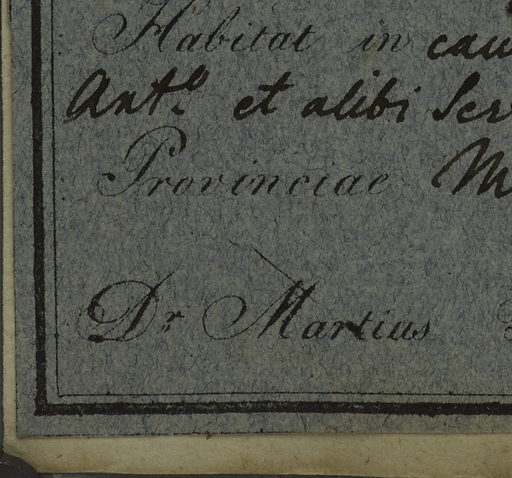 Habitat in
Ant.º et alibi
Provinciae
Dr Martius